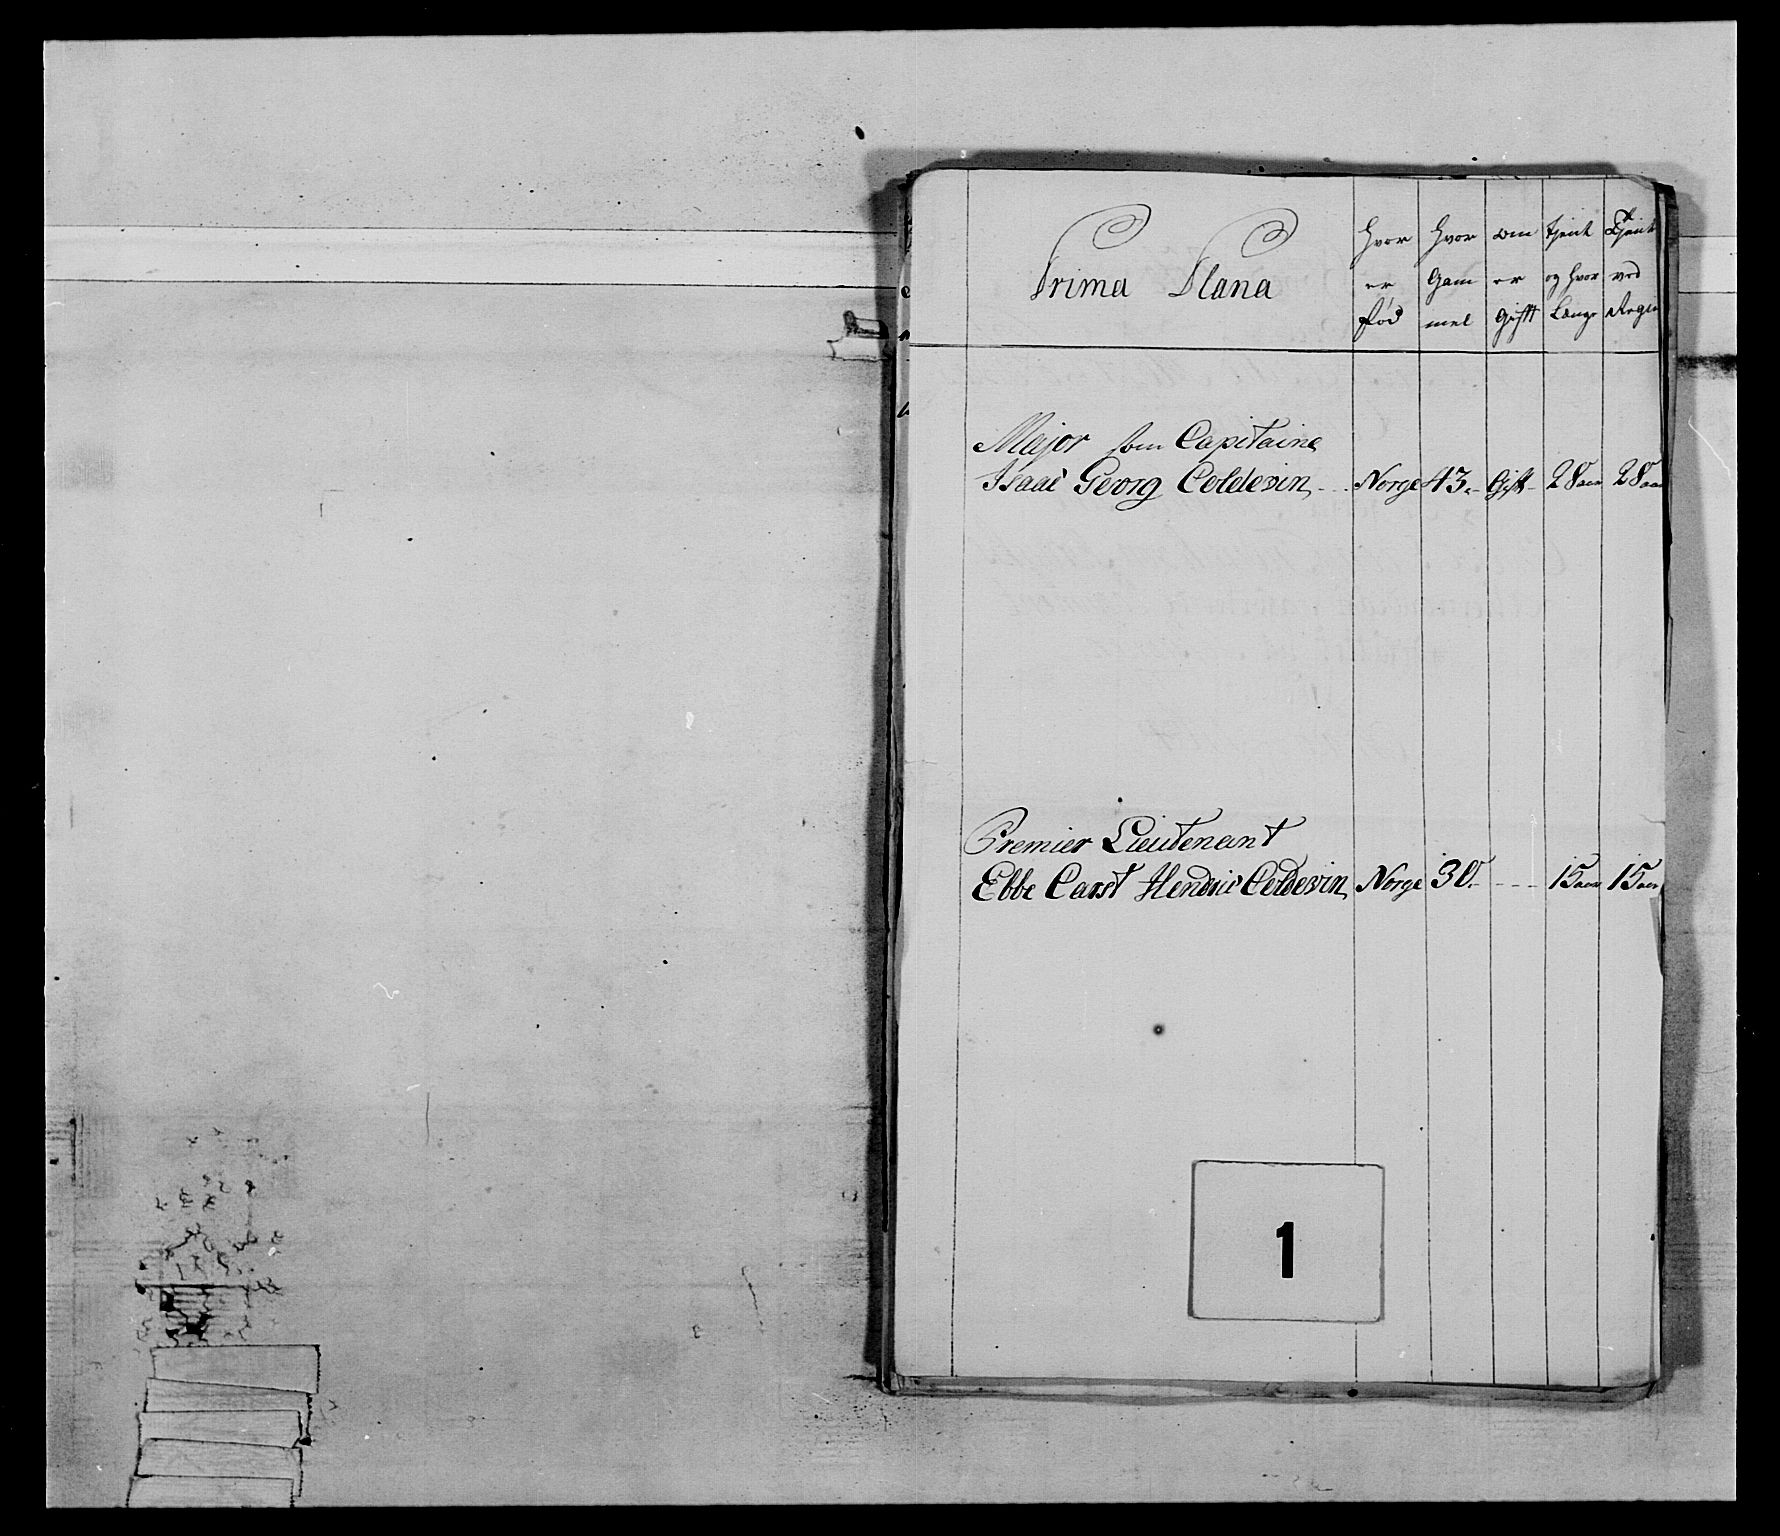 Prima Plana
Hvor er fød
Hvor Gam mel
om er Gift
tjent og hvor Længe
Tjent ved Regim
Major som Capitaine
Isaac Georg Coldevin, Norge 43. Gift 28 aar 28 aar
Premier Lieutenant
Ebbe Carst Hendric Coldevin, Norge 30. 15 aar 15 aar
1